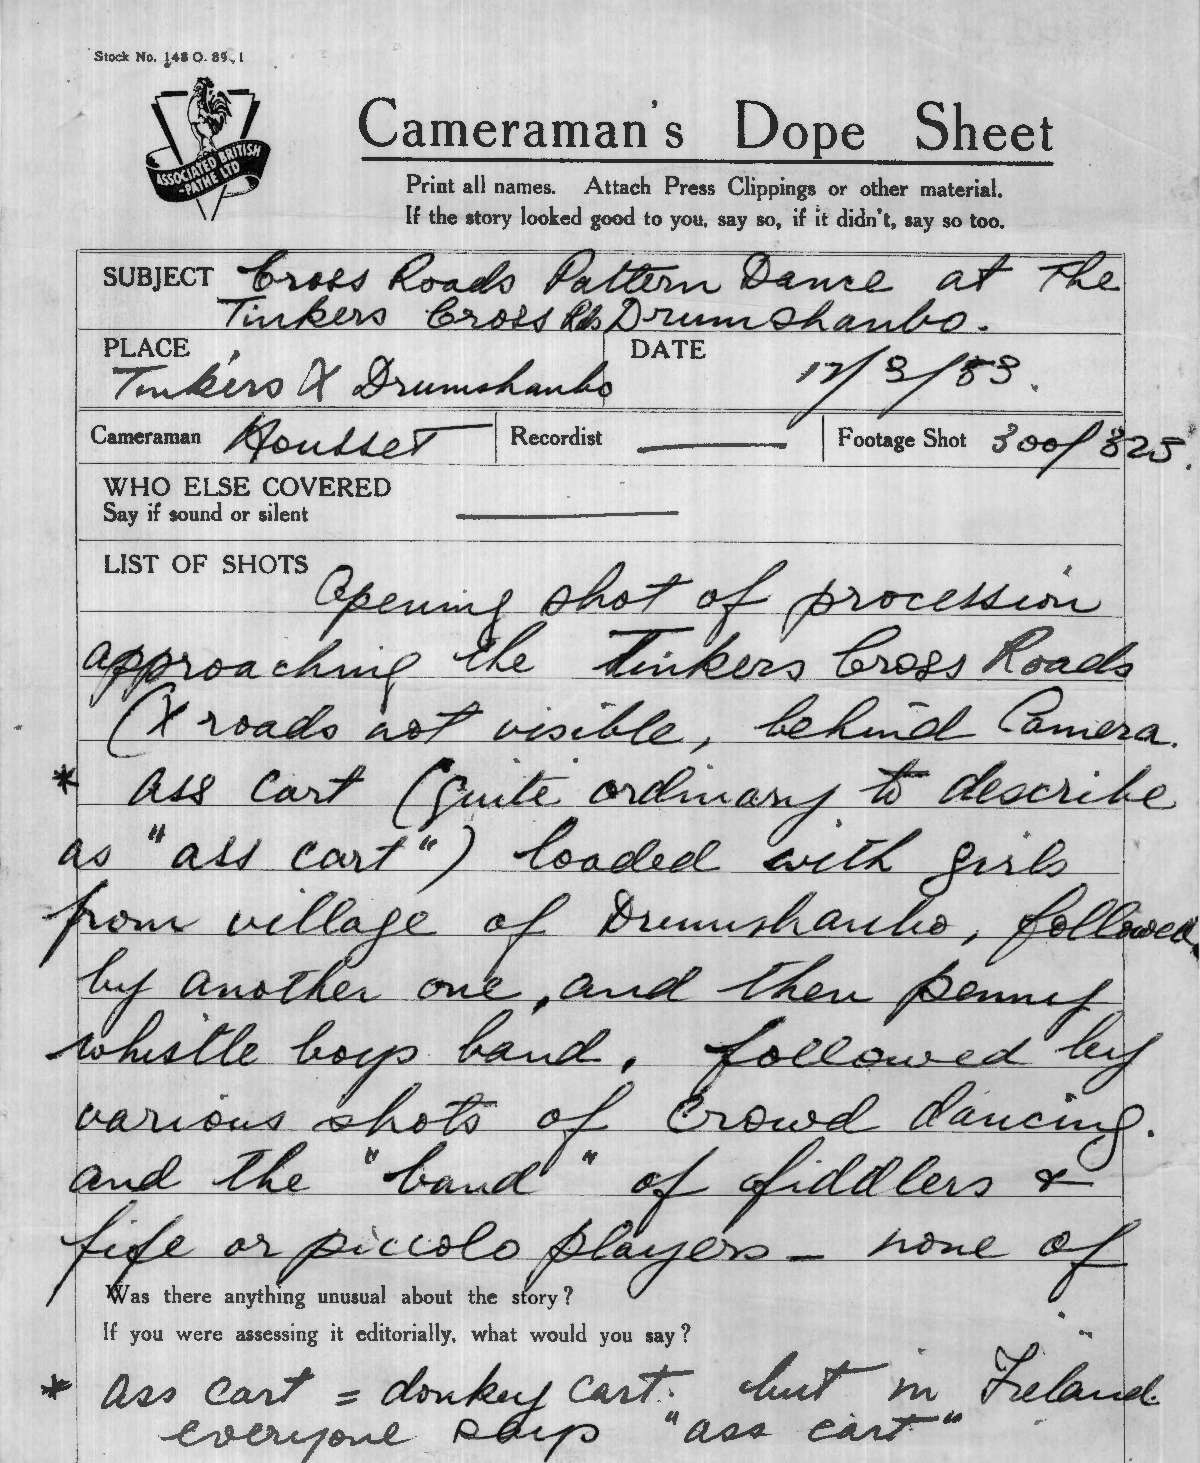 Stock No. 148 O. 89.1
ASSOCIATED BRITISH
-PATHE LTD
Cameraman's Dope Sheet
Print all names. Attach Press Clippings or other material.
If the story looked good to you, say so, if it didn't, say so too.
SUBJECT Cross Roads Pattern Dance at The
Tinkers Cross Rds Drumshanbo.
PLACE DATE
Tinkers X Drumshanbo 17/3/53.
Cameraman Housset Recordist — Footage Shot 300/325.
WHO ELSE COVERED
Say if sound or silent —
LIST OF SHOTS
Opening shot of procession
approaching the Tinkers Cross Roads
(X roads not visible, behind Camera.
* Ass Cart (quite ordinary to describe
as "ass cart") loaded with girls
from village of Drumshanbo, followed
by another one, and then penny
whistle boys band, followed by
various shots of Crowd dancing.
and the "band" of fiddlers &
fife or piccolo players — none of
Was there anything unusual about the story?
If you were assessing it editorially, what would you say?
* Ass cart = donkey cart. but in Ireland.
everyone says "ass cart"